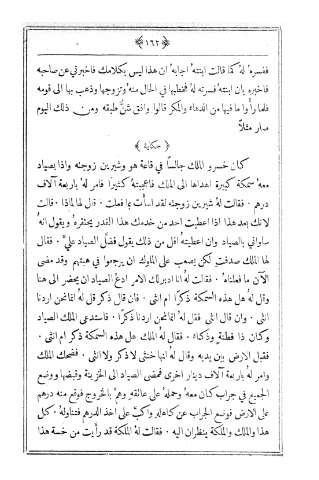 ﴿ ١٦٢ ﴾
ففسره له كما قالت ابنته اجابه ان هذا ليس بكلامك فاخبرني عن صاحبه
فاخبره بان ابنته فسرته له فخطبها في الحال منه وتزوجها وذهب بها الى قومه
فلما رأوا ما فيها من الدهاء والمكر قالوا وافق شنٌّ طبقه ومن ذلك اليوم
صار مثلاً
﴿ حكاية ﴾
كان خسرو الملك جالسًا في قاعة هو وشيرين زوجته واذا بصياد
معه سمكة كبيرة اهداها الى الملك فاعجبته كثيرًا فامر له باربعة آلاف
درهم · فقالت له شيرين زوجته لقد اسأت بما فعلت · قال لها لماذا · قالت
لانك بعد هذا اذا اعطيت احد من خدمك هذا القدر يحتقره ويقول انه
ساواني بالصياد وان اعطيته اقل من ذلك يقول فضّل الصياد عليّ · فقال
لها الملك صدقت لكن يصعب على الملوك ان يرجعوا في هبتهم وقد مضى
الآن ما فعلناه · فقالت له انا ادبر لك الامر ادعُ الصياد ان يحضر الى هنا
وقل له هل هذه السمكة ذكرًا ام انثى · فان قال ذكر قل له انما نحن اردنا
انثى · وان قال انثى فقل له انما نحن اردنا ذكرًا · فاستدعى الملك الصياد
وكان ذا فطنة وذكاء · فقال له الملك هل هذه السمكة ذكر ام انثى ·
فقبل الارض بين يديه وقال له انها خنثى لا ذكر ولا انثى · فضحك الملك
وامر له باربعة آلاف دينار اخرى فمضى الصياد الى الخزينة وقبضها ووضع
الجميع في جراب كان معه وحملهُ على عاتقه وهمّ بالخروج فوقع منه درهم
على الارض فوضع الجراب عن كاهله واكبّ على اخذ الدرهم فتناوله · كل
هذا والملك والملكة ينظران اليه · فقالت له الملكة قد رأيت من خسة هذا